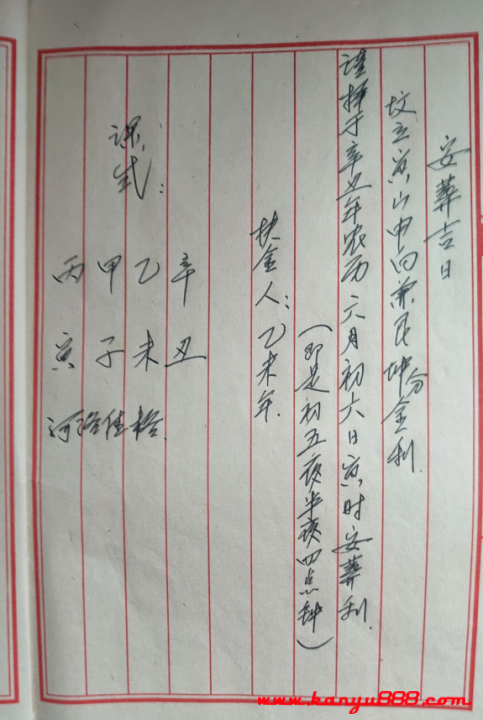 安葬吉日
坟立寅山申向兼艮坤分金利.
谨择于辛丑年农历六月初六日寅时安葬利.
（即是初五夜半夜四点钟）
扶金人：乙未年.
课式：
辛丑
乙未
甲子
丙寅
河洛佳格
www.kanyu888.com